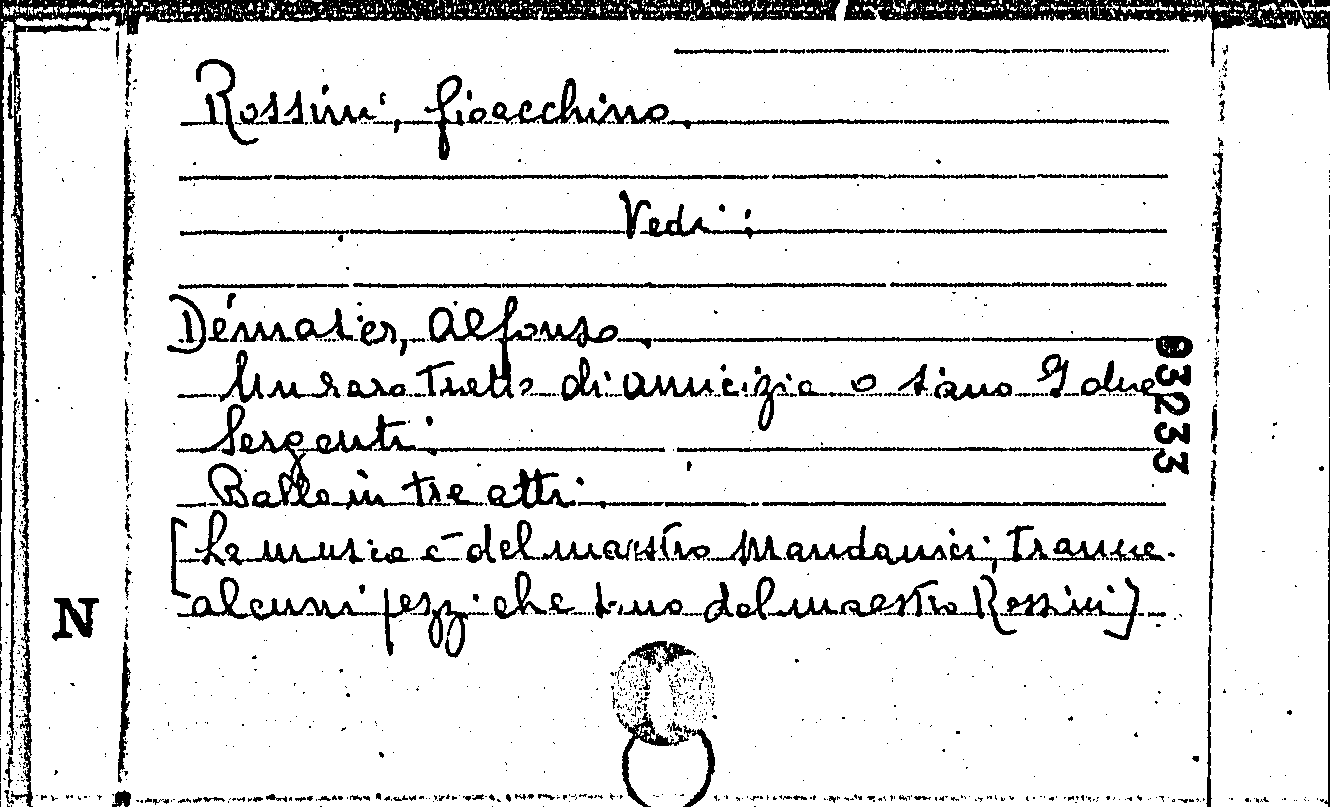 Rossini, Gioacchino.
Vedi:
Démasier, Alfonso.
Un raro tratto di amicizia o siano I due
Sergenti.
Ballo in tre atti.
[La musica è del maestro Mandanici, tranne
alcuni pezzi che sono del maestro Rossini]
03233
N